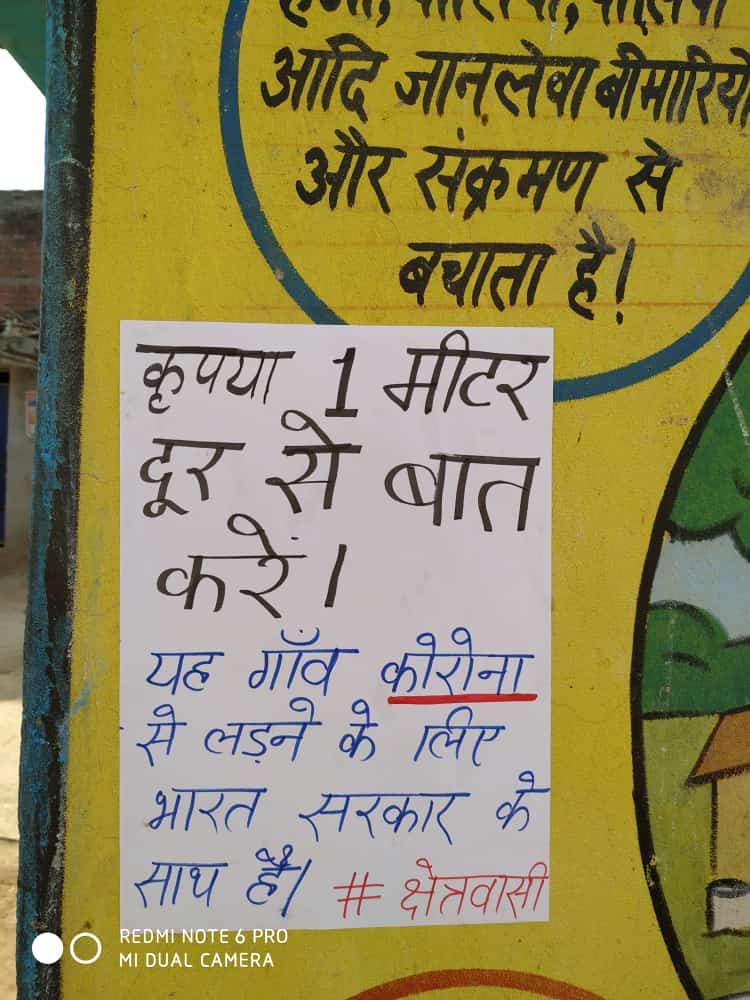 आदि जानलेवा बीमारियों
और संक्रमण से
बचाता है!
कृपया 1 मीटर
दूर से बात
करें।
यह गाँव कोरोना
से लड़ने के लिए
भारत सरकार के
साथ है। # क्षेत्रवासी
REDMI NOTE 6 PRO
MI DUAL CAMERA